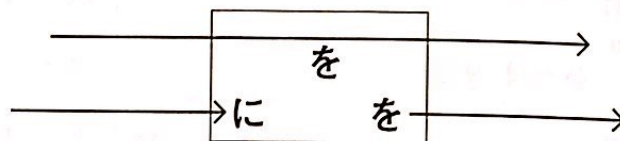 を
に を